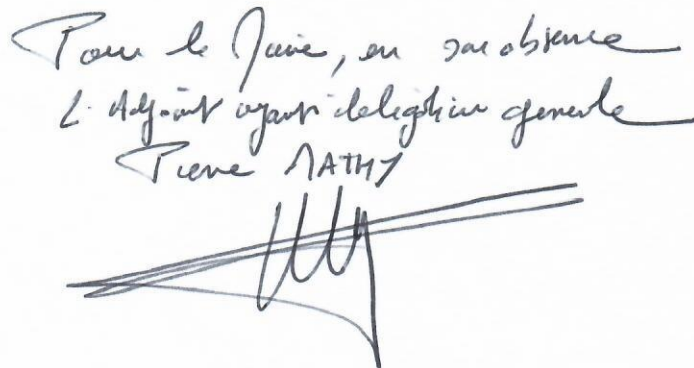 Pour le Maire, en son absence
L'Adjoint ayant délégation generale
Pierre MATHY